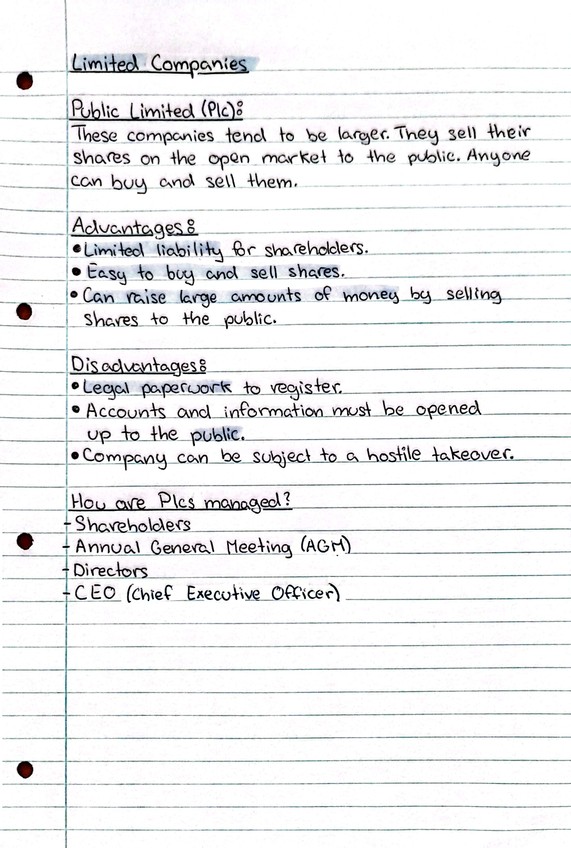 Limited Companies
Public Limited (Plc):
These companies tend to be larger. They sell their
shares on the open market to the public. Anyone
can buy and sell them.
Advantages:
• Limited liability for shareholders.
• Easy to buy and sell shares.
• Can raise large amounts of money by selling
shares to the public.
Disadvantages:
• Legal paperwork to register.
• Accounts and information must be opened
up to the public.
• Company can be subject to a hostile takeover.
How are Plcs managed?
- Shareholders
- Annual General Meeting (AGM)
- Directors
- CEO (Chief Executive Officer)